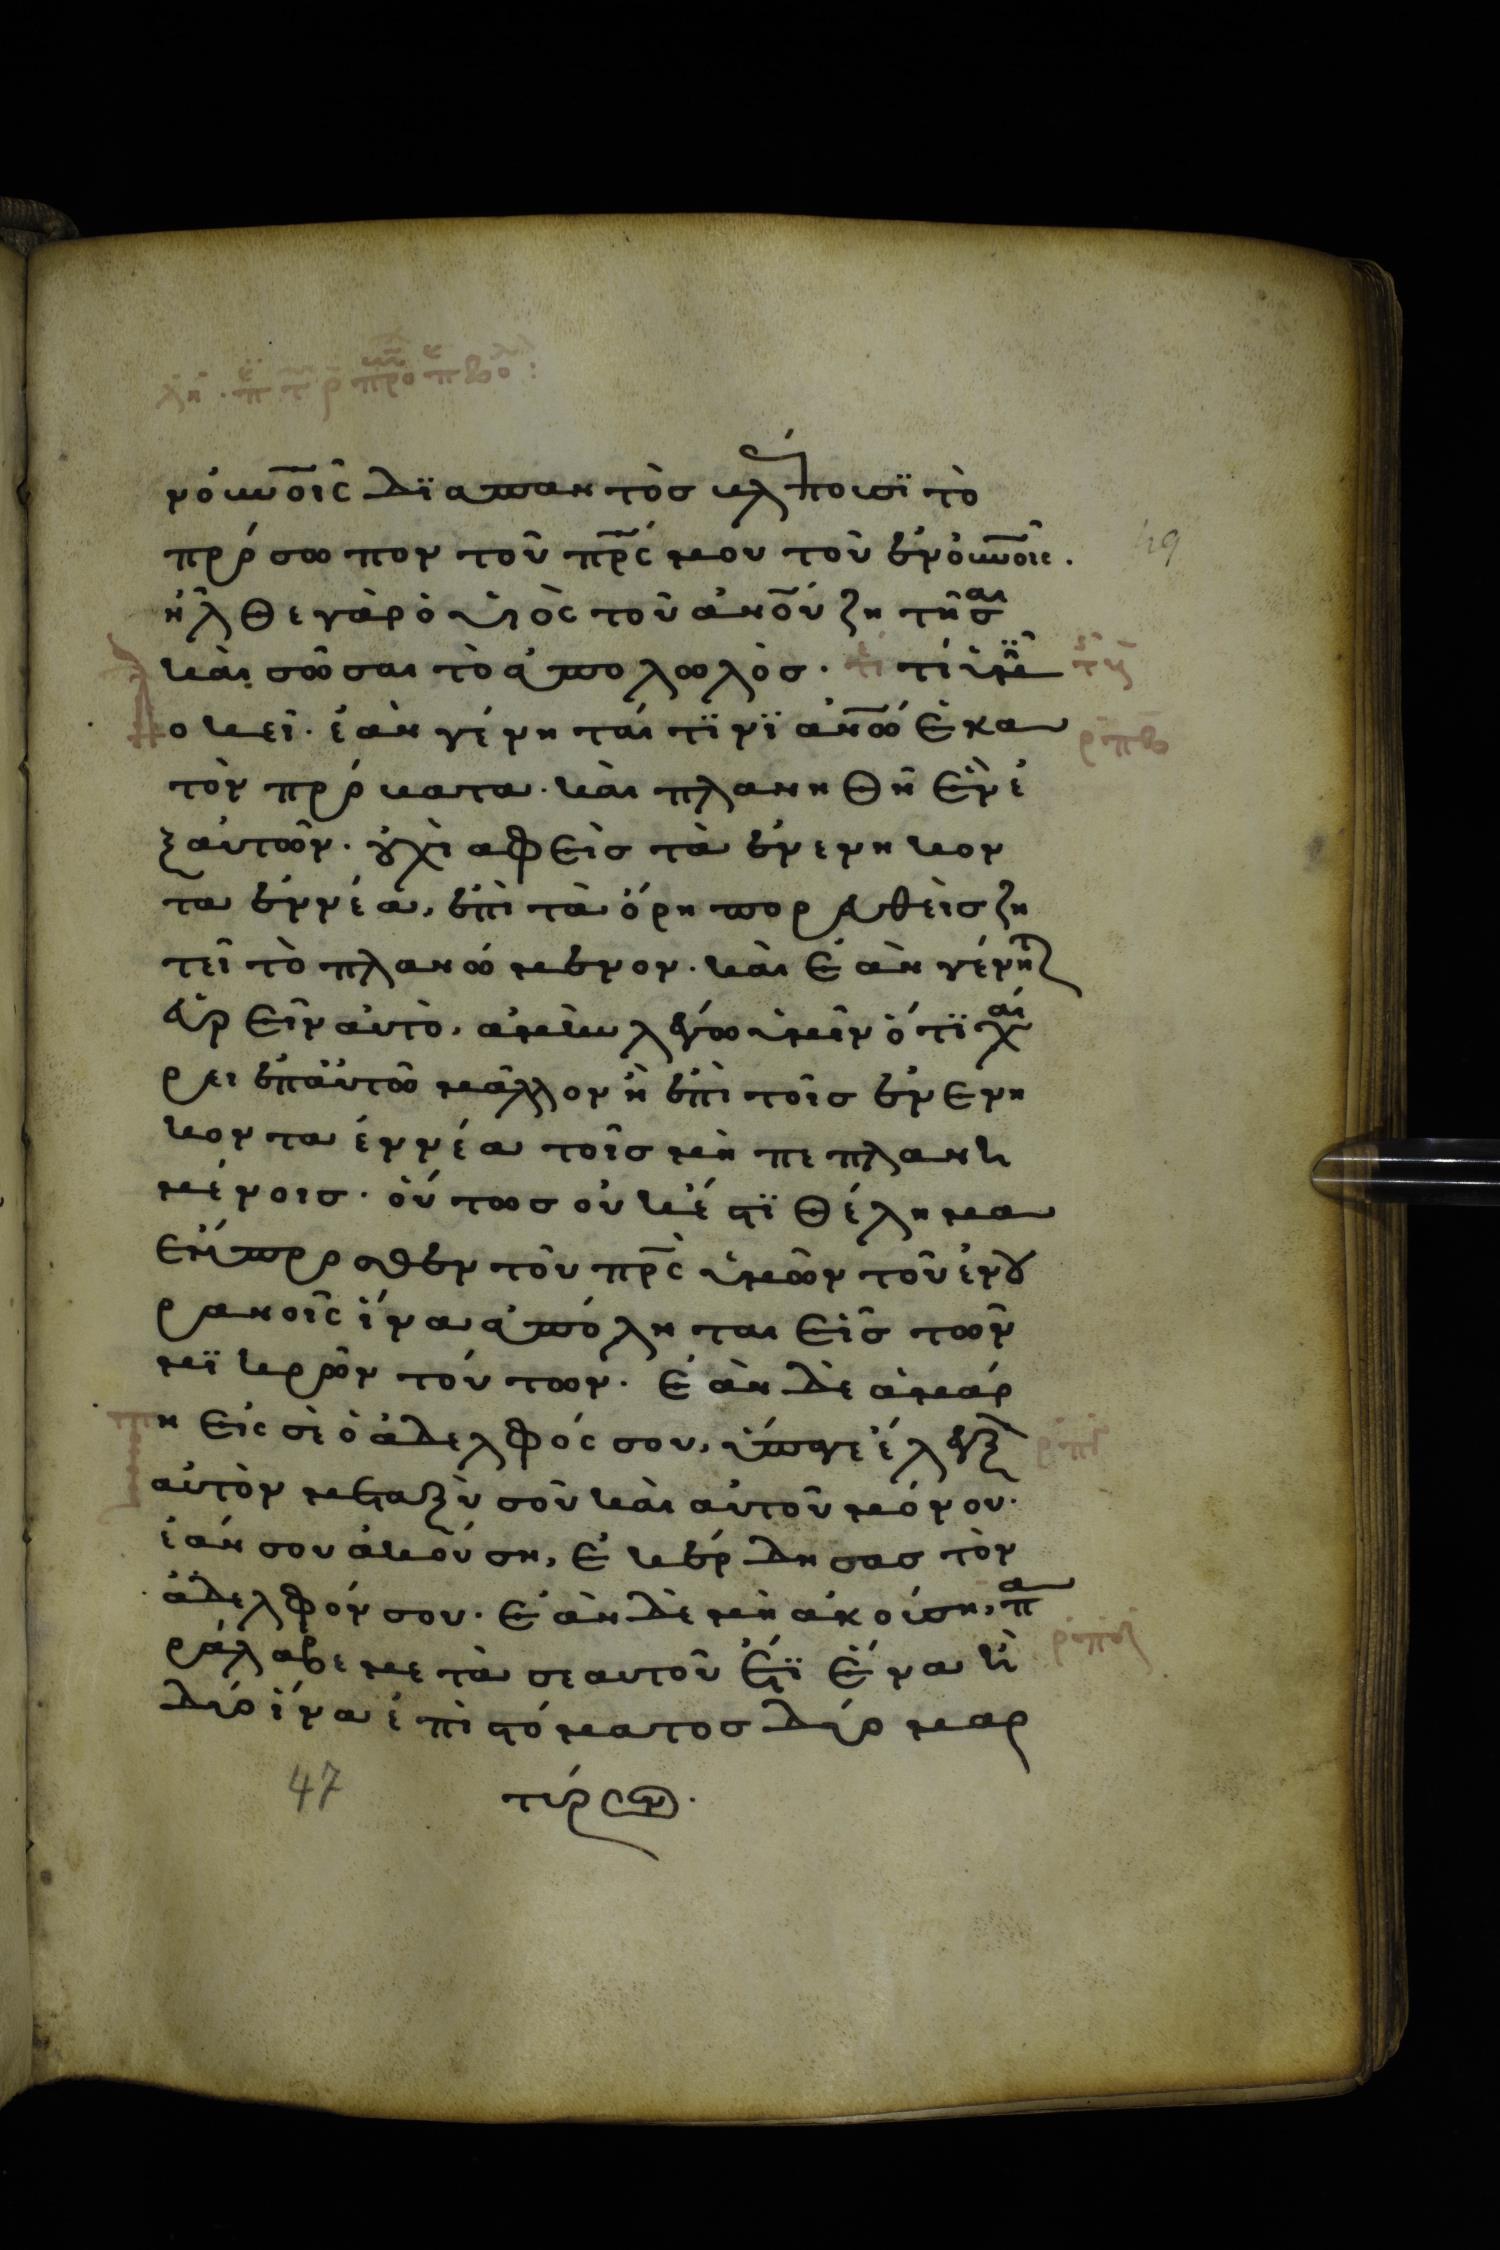 νόυνοῖς διαπαντὸσ βλέπουσϊ τὸ
πρόσωπον τοῦ πρ̅ς μου τοῦ ἐν οὐνοῖς.
ἦλθε γὰρ ὁ υἱὸς τοῦ ἀνο̅ύ ζητῆσαι
καὶ σῶσαι τὸ ἀπολωλὸσ. τί ὑμῖν
δοκεῖ. ἐὰν γένηται τϊνϊ ἀνω̅ ἑκα
τὸν πρόβατα. καὶ πλανηθῆ ἓν ἐ
ξαὐτῶν. οὐχὶ αφεὶσ τὰ ἐνενηκον
τα ἐννέα, ἐπὶ τὰ ὄρη πορευθεὶσ ζη
τεῖ τὸ πλανώμενον. καὶ ἐὰν γένητ
εὑρεῖν αὐτὸ, ἀμὴν λέγω ὑμῖν ὅτϊ χαί
ρει ἐπαὐτῶ μᾶλλον ἢ ἐπὶ τοῖσ ἐνενη
κοντα ἐννέα τοῖσ μὴ πεπλανη
μένοισ. οὕτωσ οὐκ ἔστϊ θέλημα
ἔμπροσθεν τοῦ πρ̅ς ὑμῶν τοῦ ἐν οὐ
ρανοῖς ἵνα ἀπόληται εἷσ τῶν
μϊκρῶν τούτων. ἐὰν δὲ ἁμάρ
τη εἰς σὲ ὁ ἀδελφός σου, ὕπαγε ἔλεγξ
αὐτὸν μεταξὺ σοῦ καὶ αὐτοῦ μόνου.
ἐάν σου ἀκούση, ἐκέρδησασ τὸν
ἀδελφόν σου. ἐὰν δὲ μὴ ἀκούση, πα
ράλαβε μετὰ σεαυτοῦ ἔτϊ ἕνα ἢ
δύο ἵνα ἐπὶ στόματοσ δύο μαρ
τύρων.
47